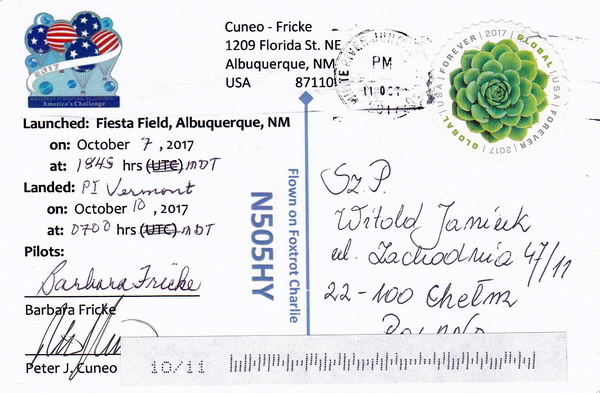 2017
America's Challenge
Cuneo - Fricke
1209 Florida St. NE
Albuquerque, NM
USA 87110
PM
11 OCT
2017
GLOBAL | USA | FOREVER | 2017 | GLOBAL | USA | FOREVER | 2017 |
Launched: Fiesta Field, Albuquerque, NM
on: October 7, 2017
at: 1845 hrs (UTC) MDT
Landed: PI Vermont
on: October 10, 2017
at: 0700 hrs (UTC) MDT
Pilots:
Barbara Fricke
Barbara Fricke
Peter J. Cuneo
N505HY
Flown on Foxtrot Charlie
Sz. P.
Witold Janicek
ul. Zachodnia 47/11
22-100 Chełm
10/11